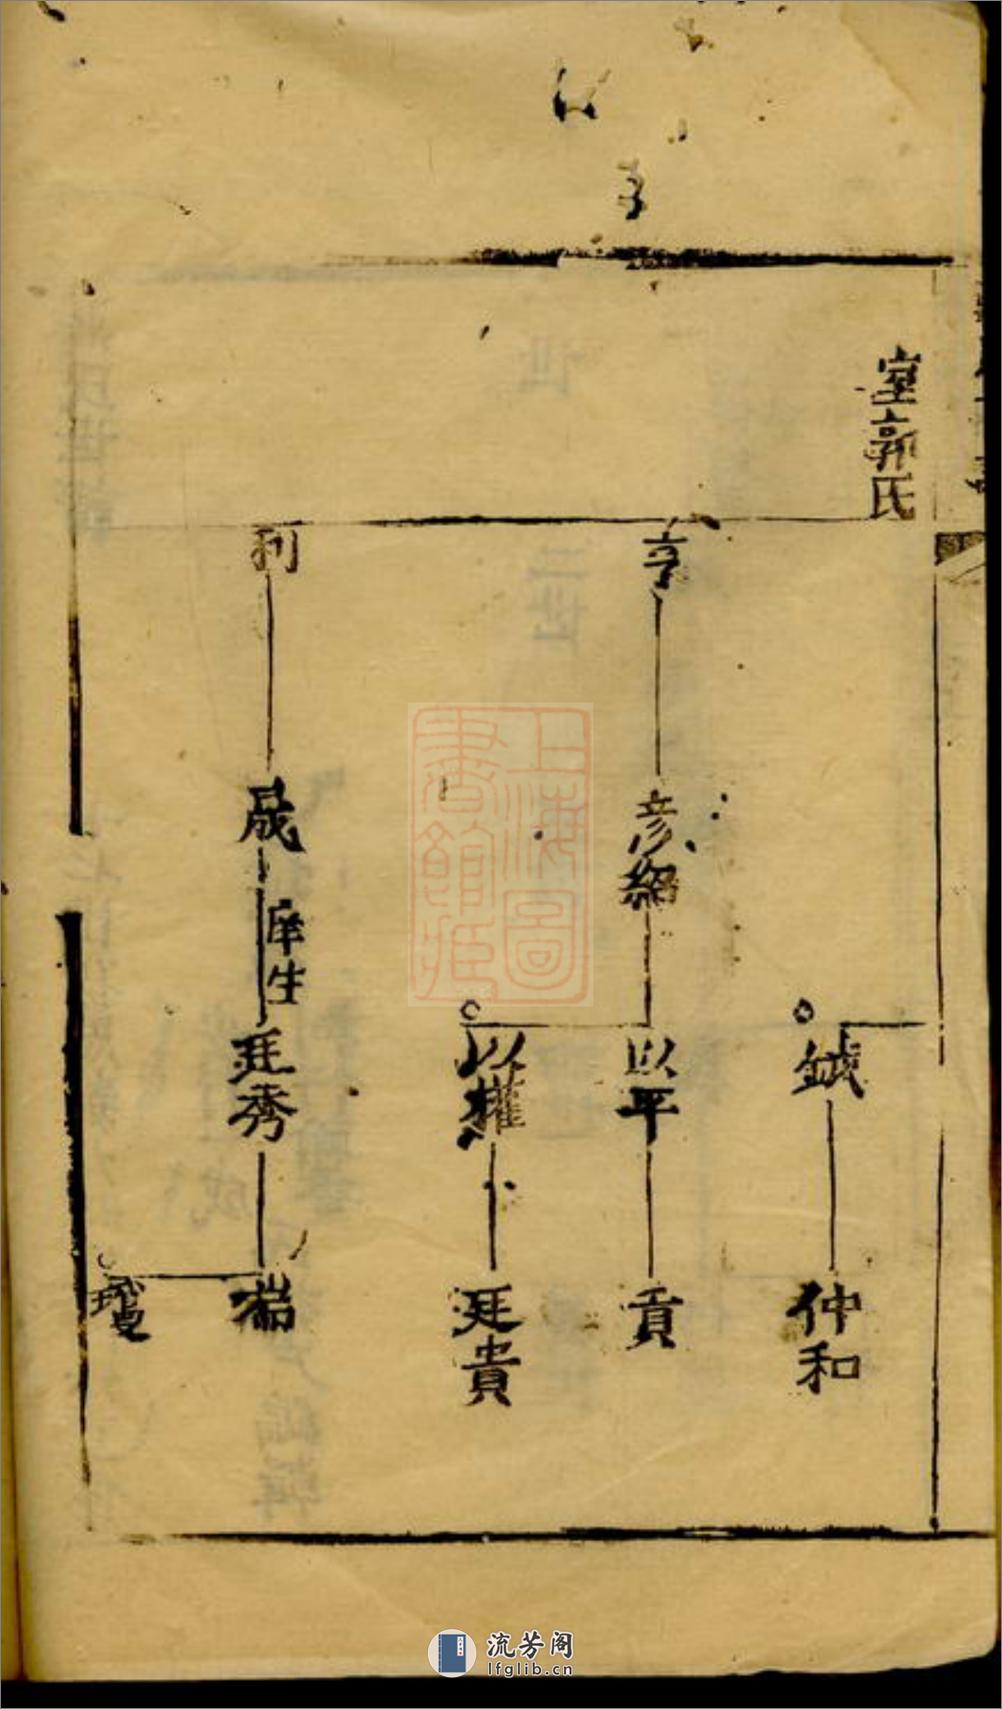 室郭氏
亨
彦紹
鉞
仲和
以平
貢
以權
廷貴
利
晟
庠生
廷秀
瑞
瓊
上海圖書館藏
流芳阁
lfglib.cn